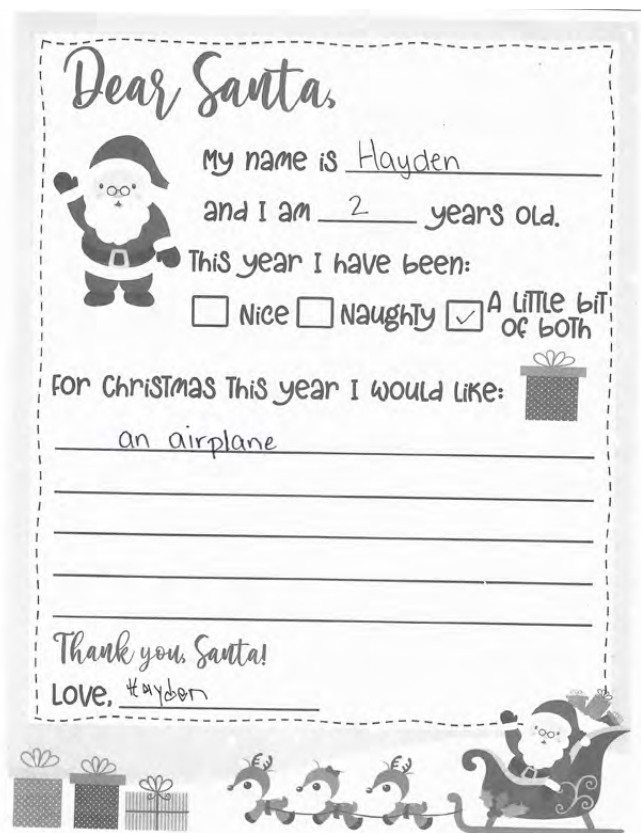 Dear Santa,
My name is Hayden
and I am 2 years old.
This year I have been:
Nice Naughty ✓ A little bit of both
For Christmas this year I would like:
an airplane
Thank you, Santa!
Love, Hayden